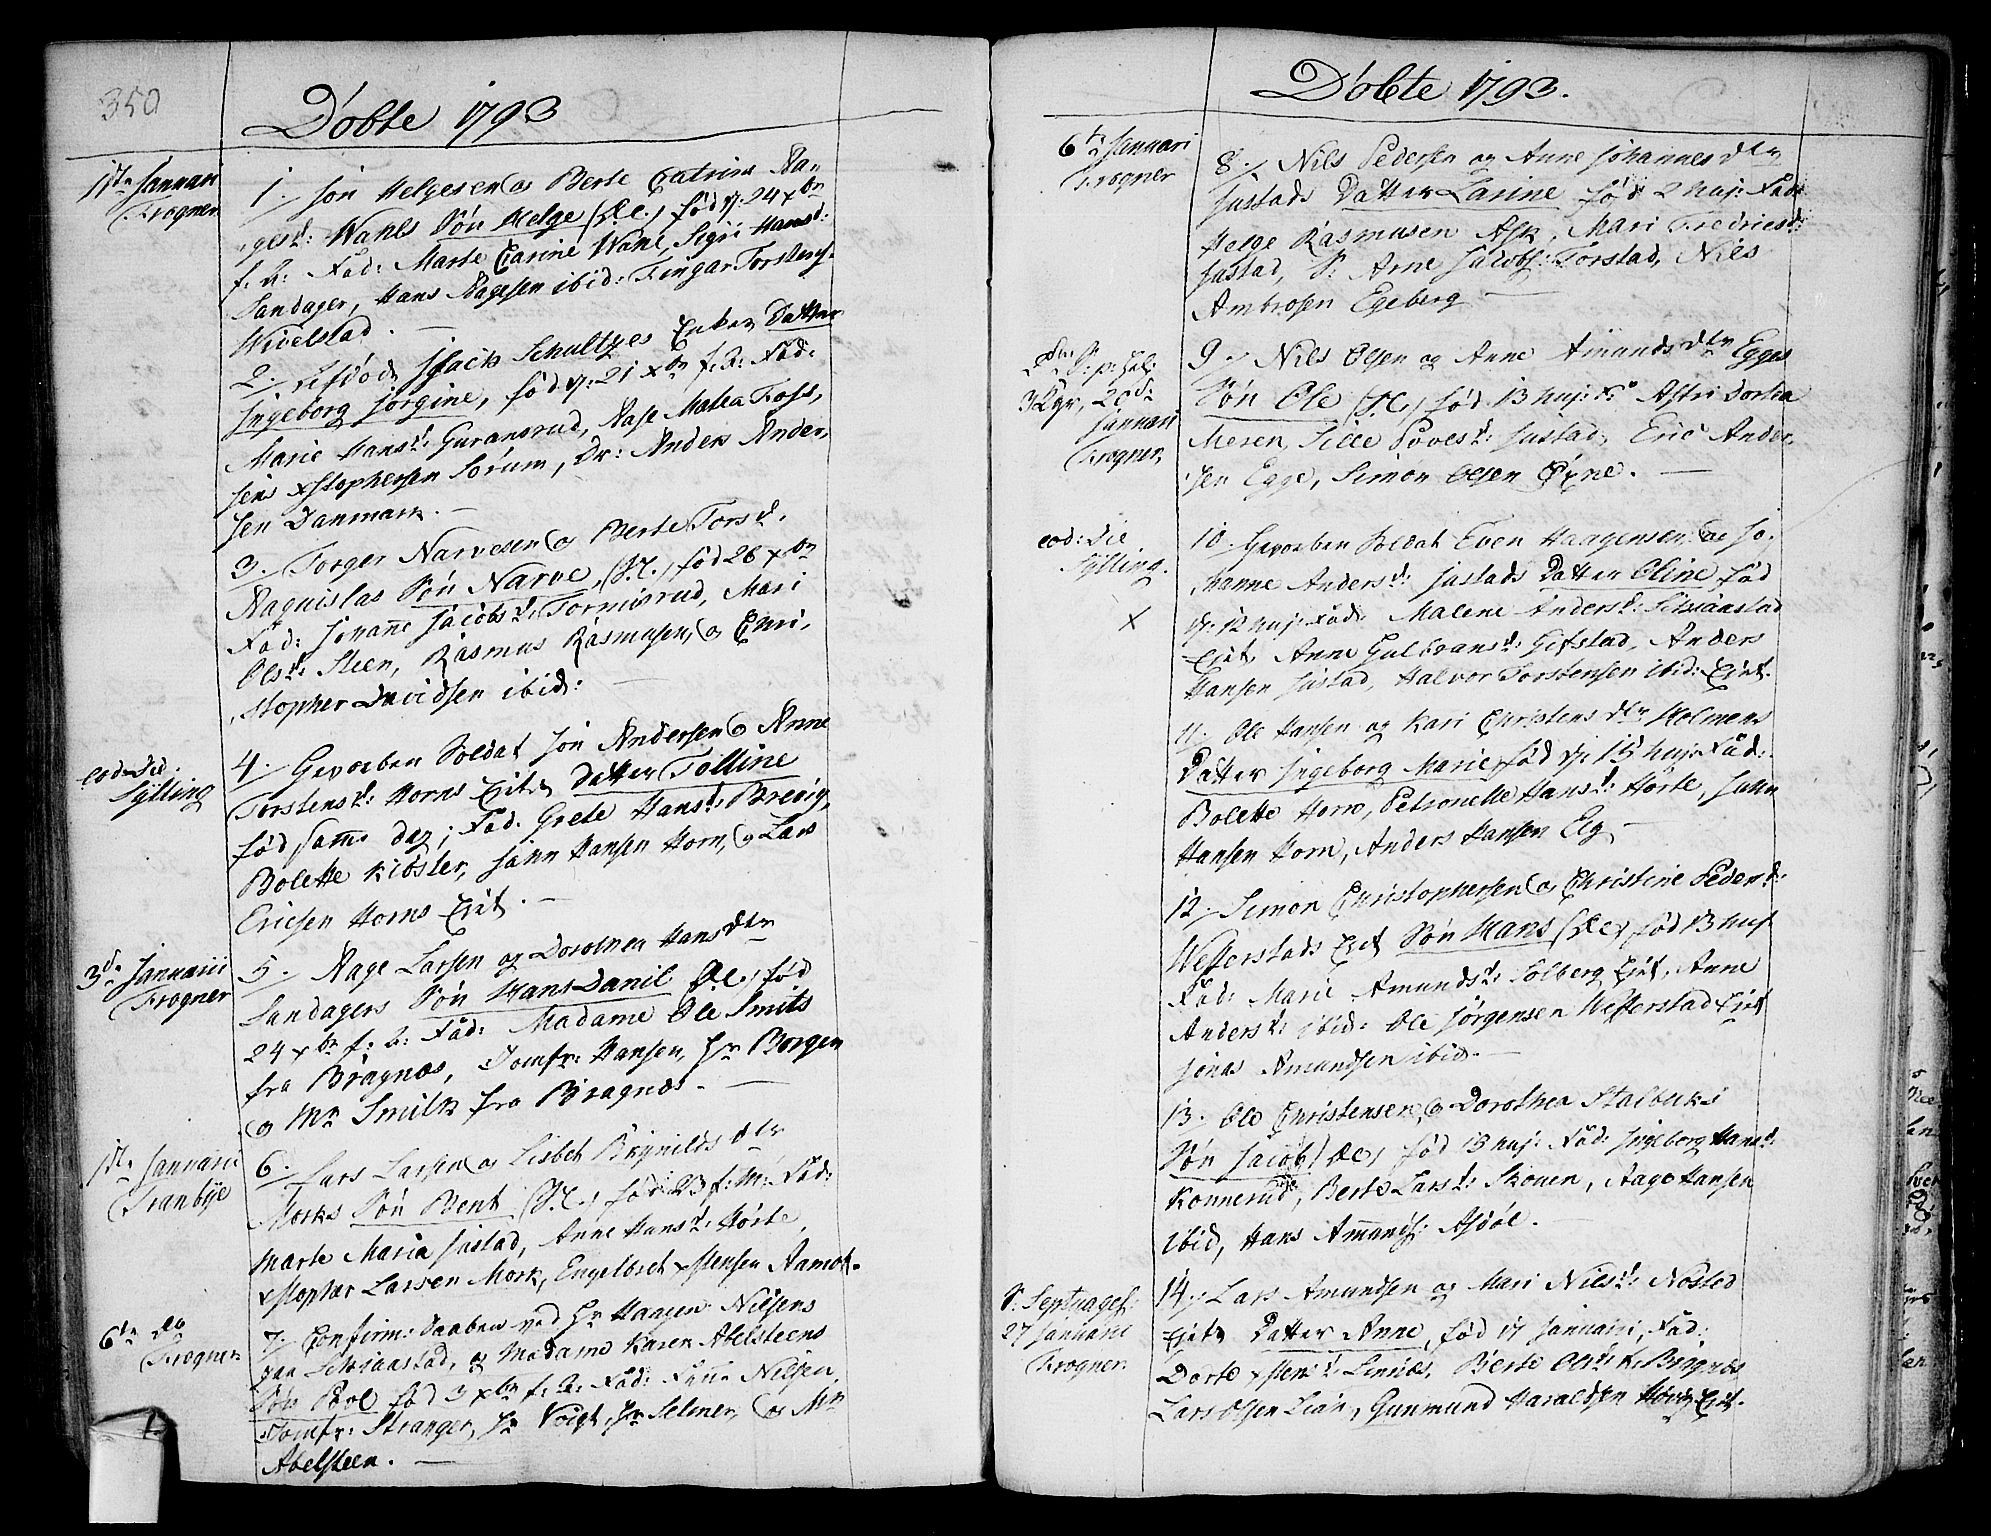 350
Döbte 1793
1ste Januari
Frogner
1. Jon Helgesen og Berte Catrine Aa-
gesd: Wahls Sön Helge (Æc.) föd d. 24 xbr
f. A: Fad: Marte Carine Wahl, Sigri Hansd:
Sandager, Hans Aagesen ibid: Fingar Torstens.
Wivelstad.
2. Afdöde Isack Schultzes Enkes Datter
Ingeborg Jörgine, föd d. 21 xbr f. A: Fad:
Marie Hansd: Guransrud, Aase Malea Foss,
Jens xstophersen Sörum, Dr: Anders Ander-
sen Danmark.
3. Torger Narvesen og Berte Torsd.
Nagnislas Sön Narve, (Æc.) föd 26 xbr
Fad: Johanne Jacobsd: Tormisrud, Mari
Olsd: Steen, Rasmus Rasmusen, og Chri-
stopher Davidsen ibid:
eod: Die:
Sylling
4. Gevorben Soldat Jon Andersen og Anne
Torstensd: Horns Eiet Datter Tolline
föd samme dag; Fad. Grete Hansd: Brevig,
Bolette Kloster, Jahn Hansen Horn, og Lars
Ericsen Horns Eiet.
3de Januarii
Frogner
5. Aage Larsen og Dorothea Hansdtr
Sandagers Sön Hans Danil Æc. föd
24 xbr f. A: Fad: Madame Ole Smits
fra Bragnæs, Jomfr: Hansen, Hr Borgen
og Mr Smith fra Bragnæs.
1ste Januarii
Tranbye
6. Lars Larsen og Lisbet Brynildsdtr
Morks Sön Bent (Æc.) föd 23 f: M: Fad:
Marte Maria Justad, Anne Hansd: Hörte,
xstopher Larsen Mork, Engelbret xstensen Aamot.
6te do
Frogner
7. Confirm: Daaben ved Hr Haagen Nilsens
paa Schianstad, og Madame Karen Abelsteens
Sön Povl föd 3 xbr f: A: Fad: Nilsen,
Jomfr: Stranger, Hr Voigt, Hr Selmer, og Mr
Abelsteen.
Döbte 1793.
6te Januari
Frogner
8. Nils Pedersen og Anne Johannesdtr
Justads Datter Larine föd 2 huj: Fad:
Helge Rasmusen Ask, Mari Fredricsd:
Justad, S. Arne Jacobs: Torstad, Nils
Ambrosen Egeberg
20de
Januari
Frogner
9. Nils Olsen og Anne Amundsdtr Egges
Sön Ole (Æc.) föd 13 huj: Astri Dortea
Meren, Sille Povelsd: Justad, Eric Ander-
sen Egge, Simon Olsen Öyne.
eod: Die
Sylling.
x
10. Gevorben Soldat Even Haagensen og Jo-
hanne Andersd: Justads Datter Oline föd
d. 12 huj: Fad: Malene Andersd: Schianstad
Eiet, Anne Gulbransd: Gifstad, Anders
Hansen Justad, Halvor Torstensen ibid: Eiet.
11. Ole Hansen og Kari Christensdtr Holmens
Datter Ingeborg Marie, föd d. 15 huj: Fad:
Bolette Horn, Petronelle Hansd: Hörte, Jahn
Hansen Horn, Anders Hansen Elg
12. Simon Christophersen og Christine Pedersd:
Westerstads Eiet Sön Hans (Æc) föd 13 huj.
Fad: Marie Amundsd: Solberg Eiet, Anne
Andersd: ibid: Ole Jörgensen Westerstad Eiet
Jonas Amundsen ibid.
13. Ole Christensen, og Dorothea Stalbuks
Sön Jacob (Æc) föd 13 huj: Fad: Ingeborg Hansd:
Konnerud, Berte Larsd: Skouen, Aage Hansen
ibid, Hans Amunds: Asdöl.
S: Septuages:
27 Januarii
Frogner
14. Lars Amundsen og Mari Nilsd: Nösted
Eiet Datter Anne, föd 17 Januarii, Fad:
Dorte xstensd: Linnæs, Berte Olsd: Bragnæs
Lars Olsen Lian, Gunmund Haraldsen Hörte Eiet.